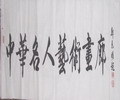 中華名人藝術畫廊